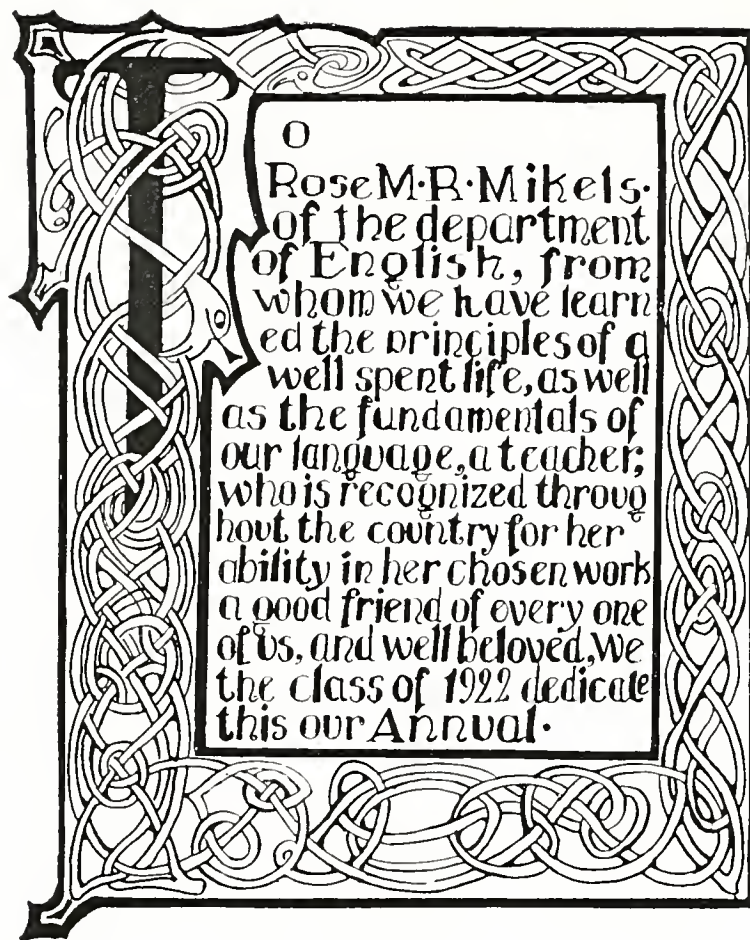 To
Rose M·R·Mikels·
of the department
of English, from
whom we have learn
ed the principles of a
well spent life, as well
as the fundamentals of
our language, a teacher,
who is recognized throug
hout the country for her
ability in her chosen work
a good friend of every one
of us, and well beloved, We
the class of 1922 dedicate
this our Annual·